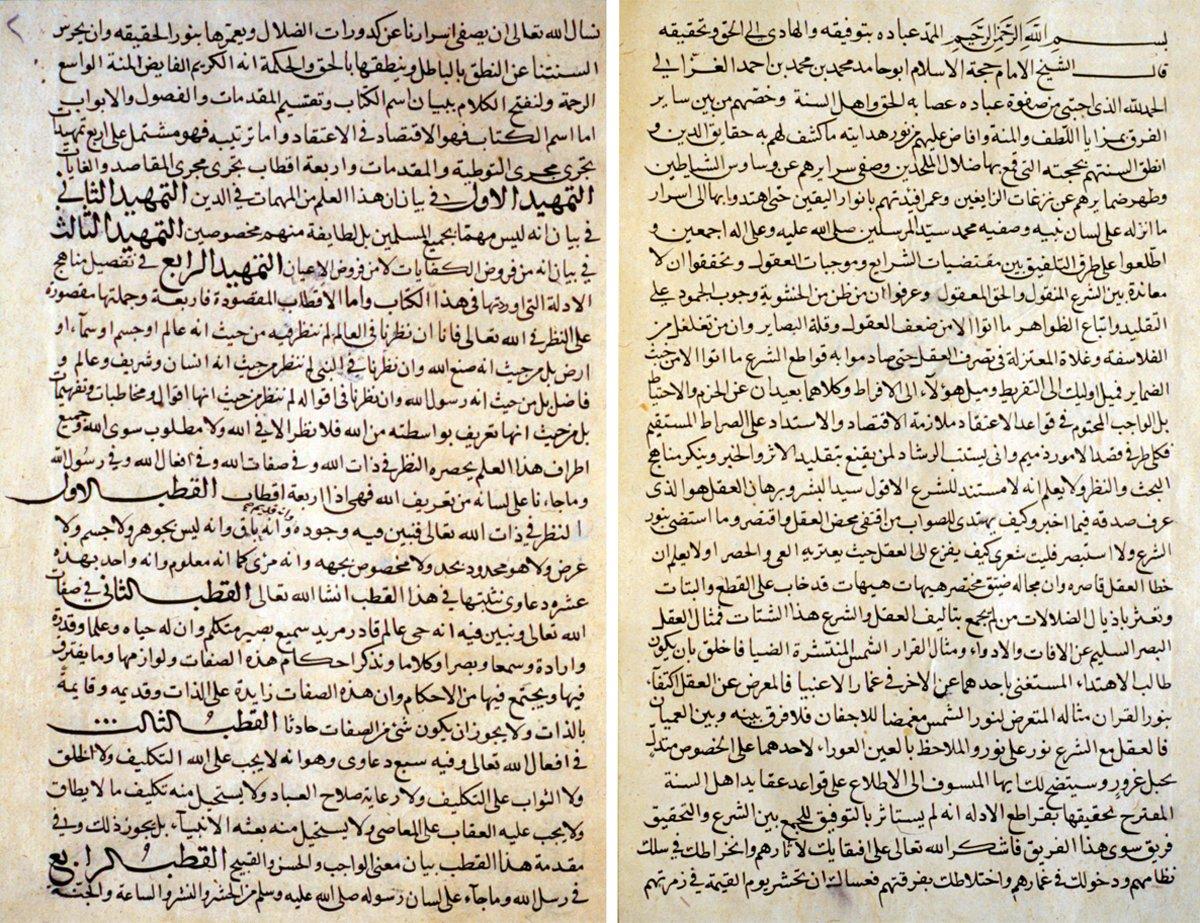 بسم الله الرحمن الرحيم الممد عباده بتوفيقه والهادي الى الحق وتحقيقه
قال الشيخ الامام حجة الاسلام ابو حامد محمد بن محمد بن احمد الغزالي
الحمد لله الذى اجتبى من صفوة عباده عصابه الحق واهل السنة وخصهم من بين ساير
الفرق بمزايا اللطف والمنة وافاض عليهم من نور هدايته ما كشف لهم به حقايق الدين و
انطق السنتهم بحجته التى قمع بها ضلال الملحدين وصفى سرايرهم عن وساوس الشياطين
وطهر ضمايرهم عن نزغات الزايغين وعمر افيدتهم بانوار اليقين حتى هتدوا بها الى اسرار
ما انزله على لسان نبيه وصفيه محمد سيد المرسلين صلى الله عليه وعلى اله اجمعين و
اطلعوا على طرق التلفيق بين مقتضيات الشرايع وموجبات العقول وتحققوا ان لا
معاندة بين الشرع المنقول والحق المعقول وعرفوا ان من ظن من الحشوية وجوب الجمود على
التقليد واتباع الظواهر ما اتوا الا من ضعف العقول وقلة البصاير وان من تغلغل من
الفلاسفة وغلاة المعتزلة فى تصرف العقل حتى صادموا به قواطع الشرع ما اتوا الا من خبث
الضماير فميل اوليك الى التفريط وميل هؤلاء الى الافراط وكلاهما بعيدان عن الحزم والاحتياط
بل الواجب المحتوم في قواعد الاعتقاد ملازمة الاقتصاد والاستداد على الصراط المستقيم
فكلا طرفى قصد الامور ذميم وانى يستتب الرشاد لمن يقنع بتقليد الاثر والخبر وينكر مناهج
البحث والنظر ولا يعلم انه لا مستند للشرع الا قول سيد البشر وبرهان العقل هو الذى
عرف صدقه فيما اخبر وكيف يهتدى للصواب من اقتفى محض العقل واقتصر وما استضى بنور
الشرع ولا استبصر فليت شعرى كيف يفزع الى العقل حيث يعتريه العي والحصر اولا يعلم ان
خطا العقل قاصره وان مجاله ضيق مختصر هيهات هيهات قد خاب على القطع والبتات
وتعثر باذيال الضلالات من لم يجمع بتاليف العقل والشرع هذا الشتات فمثال العقل
البصر السليم عن الافات والادواء ومثال القرار الشمس المنتشرة الضيا فاخلق بان يكون
طالب الاهتداء المستغنى باحدهما عن الاخر فى غمار الاغبيا فالمعرض عن العقل اكتفاء
بنور القران مثاله المتعرض لنور الشمس مغمضا للاجفان فلا فرق بينه وبين العميان
فالعقل مع الشرع نور على نور والملاحظ بالعين العوراء لاحدهما على الخصوص متدل
بحبل غرور وسيتضح لك ايها المسوف الى الاطلاع على قواعد عقايد اهل السنة
المقترح تحقيقها بقراطع الادله انه لم يستاثر بالتوفيق للجمع بين الشرع والتحقيق
فريق سوى هذا الفريق فاشكر الله تعالى على اقتفايك لاثارهم وانخراطك في سلك
نظامهم ودخولك فى غمارهم واختلاطك بفرقتهم فعساك ان تحشر يوم القيمة فى زمرتهم
نسال الله تعالى ان يصفى اسرارنا عن كدورات الضلال ويعمرها بنور الحقيقه وان يخرس
السنتنا عن النطق بالباطل وينطقها بالحق والحكمة انه الكريم الفايض المنة الواسع
الرحمة ولنفتح الكلام ببيان اسم الكتاب وتقسيم المقدمات والفصول والابواب
اما اسم الكتاب فهو الاقتصاد فى الاعتقاد واما ترتيبه فهو مشتمل على اربع تمهيدات
تجرى مجرى التوطية والمقدمات واربعة اقطاب تجرى مجرى المقاصد والغايات
التمهيد الاول فى بيان ان هذا العلم من المهمات فى الدين التمهيد الثانى
فى بيان انه ليس مهما بجميع المسلمين بل لطايفة منهم مخصوصين التمهيد الثالث
فى بيان انه من فروض الكفايات لا من فروض الاعيان التمهيد الرابع فى تفصيل مناهج
الادلة التى اوردتها فى هذا الكتاب واما الاقطاب المقصودة فاربعة وجملتها مقصورة
على النظر فى الله تعالى فانا ان نظرنا فى العالم لم ننظر فيه من حيث انه عالم او جسم او سماء او
ارض بل من حيث انه صنع الله وان نظرنا فى النبى لم ننظر من حيث انه انسان وشريف وعالم و
فاضل بل من حيث انه رسول الله وان نظرنا فى اقواله لم ننظر من حيث انها اقوال ومخاطبات وتفهيمات
بل من حيث انها تعريف بواسطته من الله فلا نظر الا فى الله ولا مطلوب سوى الله وجميع
اطراف هذا العلم يحصره النظر فى ذات الله وفى صفات الله وفى افعال الله وفى رسول الله
وما جاءنا على لسانه من تعريف الله فهى اذا اربعة اقطاب القطب الاول
النظر فى ذات الله تعالى فنبين فيه وجوده وانه قديم وانه باق وانه ليس بجوهر ولا جسم ولا
عرض ولا هو محدود بحد ولا مخصوص بجهه وانه مرئى كما انه معلوم وانه واحد بهذه
عشره دعاوى نثبتها فى هذا القطب انشا الله تعالى القطب الثانى فى صفات
الله تعالى ونبين فيه انه حى عالم قادر مريد سميع بصير متكلم وان له حياه وعلما وقدرة
وارادة وسمعا وبصرا وكلاما ونذكر احكام هذه الصفات ولوازمها وما يفترق
فيها ويجتمع فيها من الاحكام وان هذه الصفات زايدة على الذات وقديمه وقايمة
بالذات ولا يجوز ان يكون شئ من الصفات حادثا القطب الثالث
فى افعال الله تعالى وفيه سبع دعاوى وهو انه لا يجب على الله التكليف ولا الخلق
ولا الثواب على التكليف ولا رعاية صلاح العباد ولا يستحيل منه تكليف ما لا يطاق
ولا يجب عليه العقاب على المعاصى ولا يستحيل منه بعثه الانبياء بل يجوز ذلك وفى
مقدمة هذا القطب بيان معنى الواجب والحسن والقبيح القطب الرابع
فى رسل الله وما جاء على لسان رسوله صلى الله عليه وسلم من الحشر والنشر والساعة والجنة